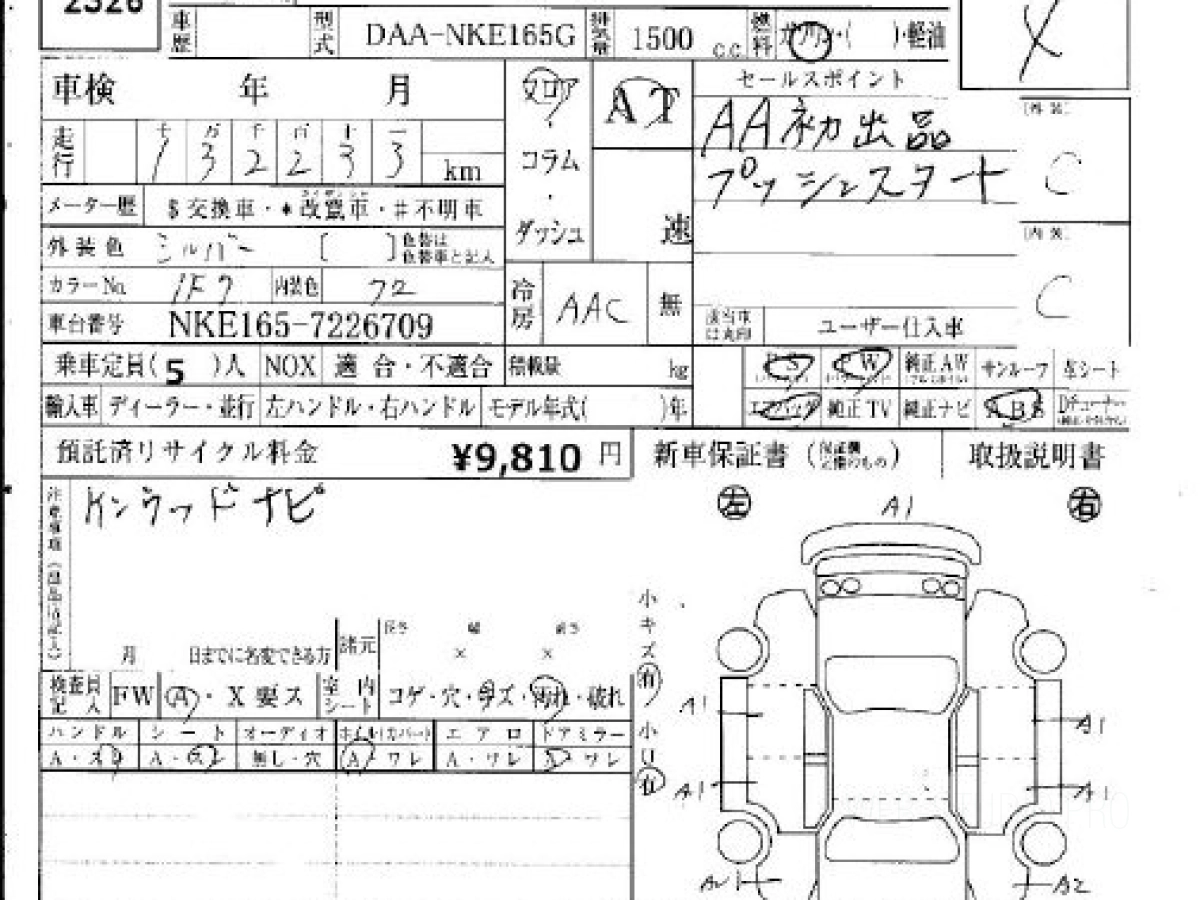 2326
車歴
型式 DAA-NKE165G 排気量 1500 c.c. 燃料 ガソリン・( )・軽油
X
車検 年 月
フロア・コラム・ダッシュ
AT
速
セールスポイント
AA初出品
プッシュスタート
[外装]
C
[内装]
C
走行 十 万 千 百 十 一
1 3 2 2 3 3 km
メーター歴 $交換車・*改竄車・#不明車
外装色 シルバー [ ]色替は色替車と記入
カラーNo. 1F7 内装色 72
冷房 AAC 無
車台番号 NKE165-7226709
該当車は丸印 ユーザー仕入車
乗車定員(5)人 NOX 適合・不適合 積載量 kg
PS PW 純正AW サンルーフ 革シート
輸入車 ディーラー・並行 左ハンドル・右ハンドル モデル年式( )年
エアバッグ 純正TV 純正ナビ ABS Dチューナー
預託済リサイクル料金 ¥9,810 円
新車保証書 取扱説明書
ケンウッドナビ
左 右
A1
月 日までに名変できる方 諸元 長さ 幅 高さ
× ×
小キズ 有
小凹 有
検査員記入 FW A・X要ス 室内シート コゲ・穴・キズ・汚れ・破れ
ハンドル シート オーディオ ホイル(カバー) エアロ ドアミラー
A・スリ A・スレ 無し・穴 A ワレ A・ワレ A ワレ
A1 A1
A1 A1
A2